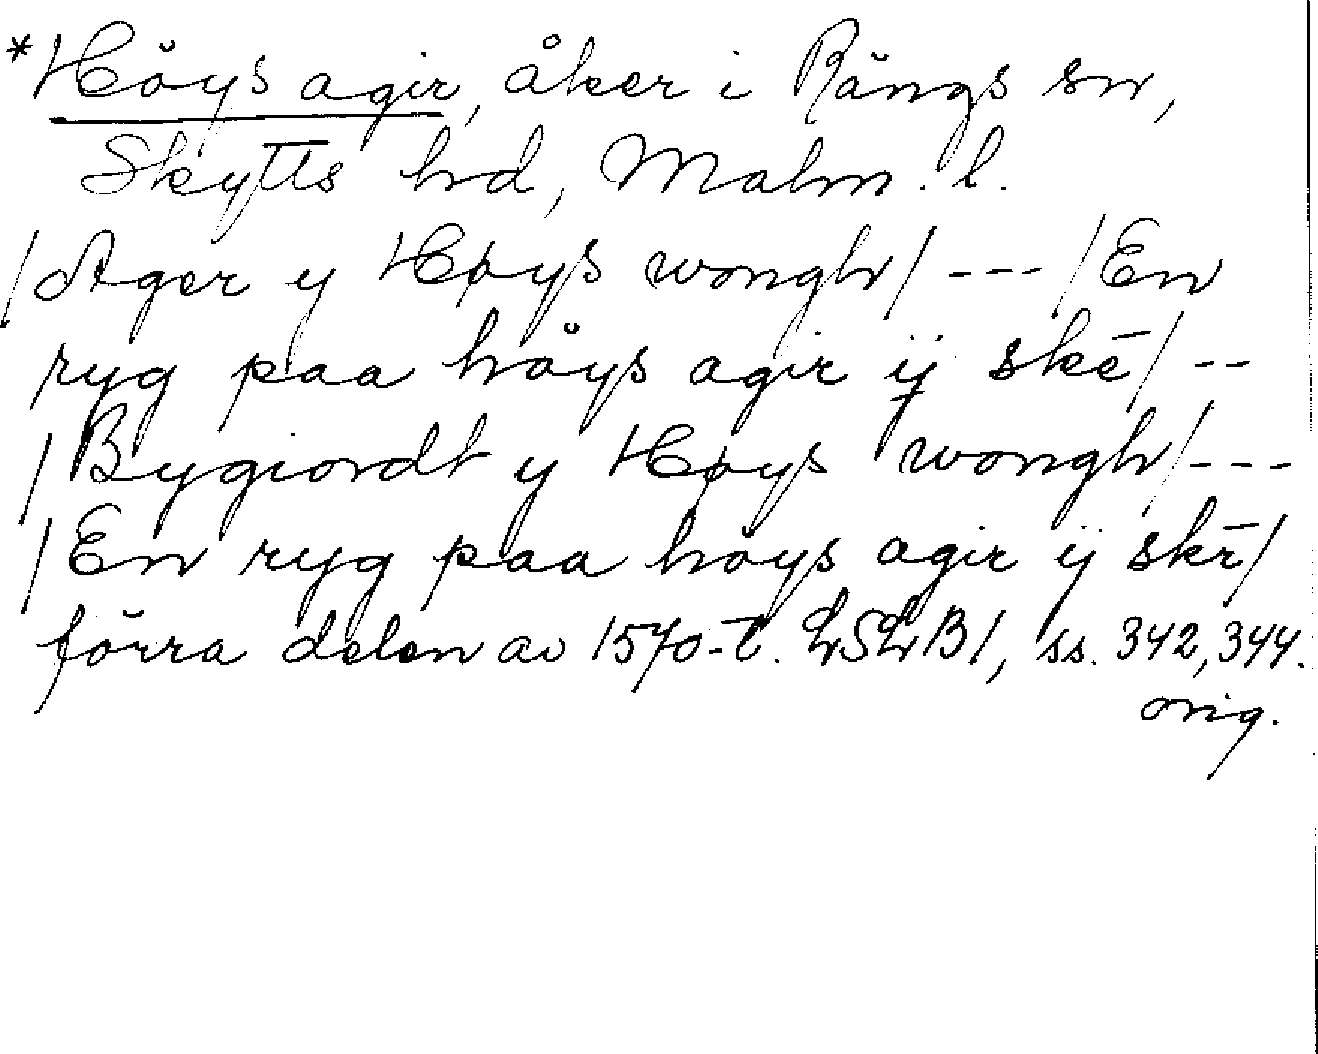 *Höys agir, åker i Rängs sn,
Skytts hd, Malm. l.
/Ager y Høys wongh/ --- /En
ryg paa höys agir ij skē/ --
/Bygiordt y Høys wongh/ ---
/En ryg paa höys agir ij skē/
förra delen av 1570-t. LSLB1, ss. 342, 344.
orig.